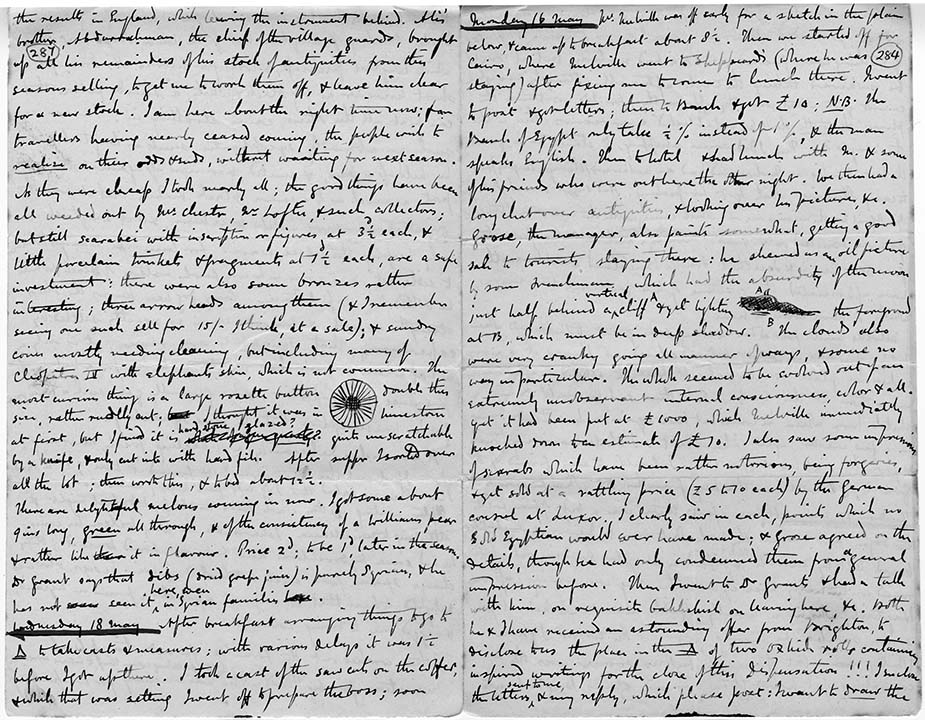 the results in England, while leaving the instrument behind. Ali's
brother Abdurrahman, the chief of the village guards, brought
(287)
up all his remainders of his stock of antiquities from this
seasons selling, to get me to work them off, & leave him clear
for a new stock. I am here about the right time now; for
travellers having nearly ceased coming, the people wish to
realise on their odds & ends, without waiting for next season.
As they were cheap I took nearly all; the good things have been
all weeded out by Mr Chester, Mr Loftie & such collectors;
but still scarabei with inscription or figures, at 3½d each, &
little porcelain trinkets & fragments at 1½d each, are a safe
investment: there were also some bronzes rather
interesting; three arrow heads among them (& I remember
seeing one such sell for 15/- I think at a sale); & sundry
coins mostly needing cleaning, but including many of
Cleopatra IV with elephants skin, which is not common. The
most curious thing is a large rosette button double this
size, rather rudely cut; I thought it was in limestone
at first, but I find it is hard stone glazed? quite unscratchable
by a knife, & only cut into with hard file. After supper I sorted over
all the lot; then wrote this, & to bed about 12½.
There are delightful melons coming in now, I got some about
9 ins long, green all through, & of the consistency of a Williams pear
& rather like it in flavour. Price 2d; to be 1d later in the season.
Dr Grant says that dibs (dried grape juice) is purely Syrian, & he
has not seen it here, even in Syrian families.
Wednesday 18 May After breakfast arranging things to go to
Δ to take casts & measures; with various delays it was 1½
before I got up there. I took a cast of the saw cuts on the coffer,
& while that was setting I went off to prepare the boss; soon
Monday 16 May Mr Melville was off early for a sketch in the plain
below, & came up to breakfast about 8½. Then we started off for
(284)
Cairo, where Melville went to Sheppeards (where he was
staying) after fixing me to come to lunch there. I went
to post & got letters; then to Bank & got £10; N.B. The
Bank of Egypt only take ½ % instead of 1 %, & the man
speaks English. Then to hotel & had lunch with M. & some
of his friends who were out here the other night. We then had a
long chat over antiquities, & looking over his pictures, &c.
Goose, the manager, also paints somewhat, getting a good
sale to tourists staying there: he shewed us an oil picture
by some Frenchman, which had the absurdity of the moon
just half behind a vertical cliff A & yet lighting the foreground
A
B
at B, which must be in deep shadow. The clouds also
were very cranky going all manner of ways, & some no
way in particular. The whole seemed to be evolved out of an
extremely unobservant internal consciousness, color & all.
Yet it had been put at £1000, which Melville immediately
knocked down to an estimate of £10. I also saw some impressions
of scarabs which have been rather notorious, being forgeries,
& yet sold at a rattling price (£5 to 10 each) by the German
consul at Luxor. I clearly saw in each, points which no
Old Egyptian would ever have made; & Goose agreed on the
details, though he had only condemned them from a general
impression before. Then I went to Dr Grants & had a talk
with him, on requisite bakhshish on leaving here, &c. Both
he & I have received an astounding offer from Brighton, to
disclose to us the place in the Δ of two oxhide rolls containing
inspired writings for the close of this dispensation!!! I enclose
the letters, & my reply, which please post: I want to draw the